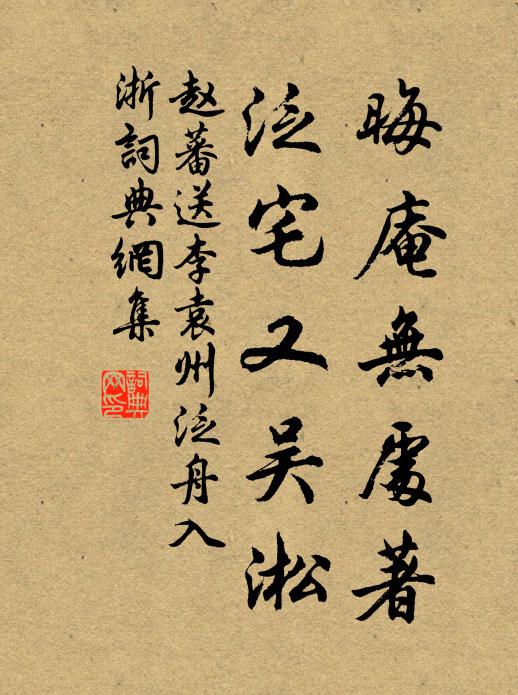 晦庵無處著
泛宅又吴淞
赵蕃送李袁州泛舟入
浙詞典網集
詞典
网印